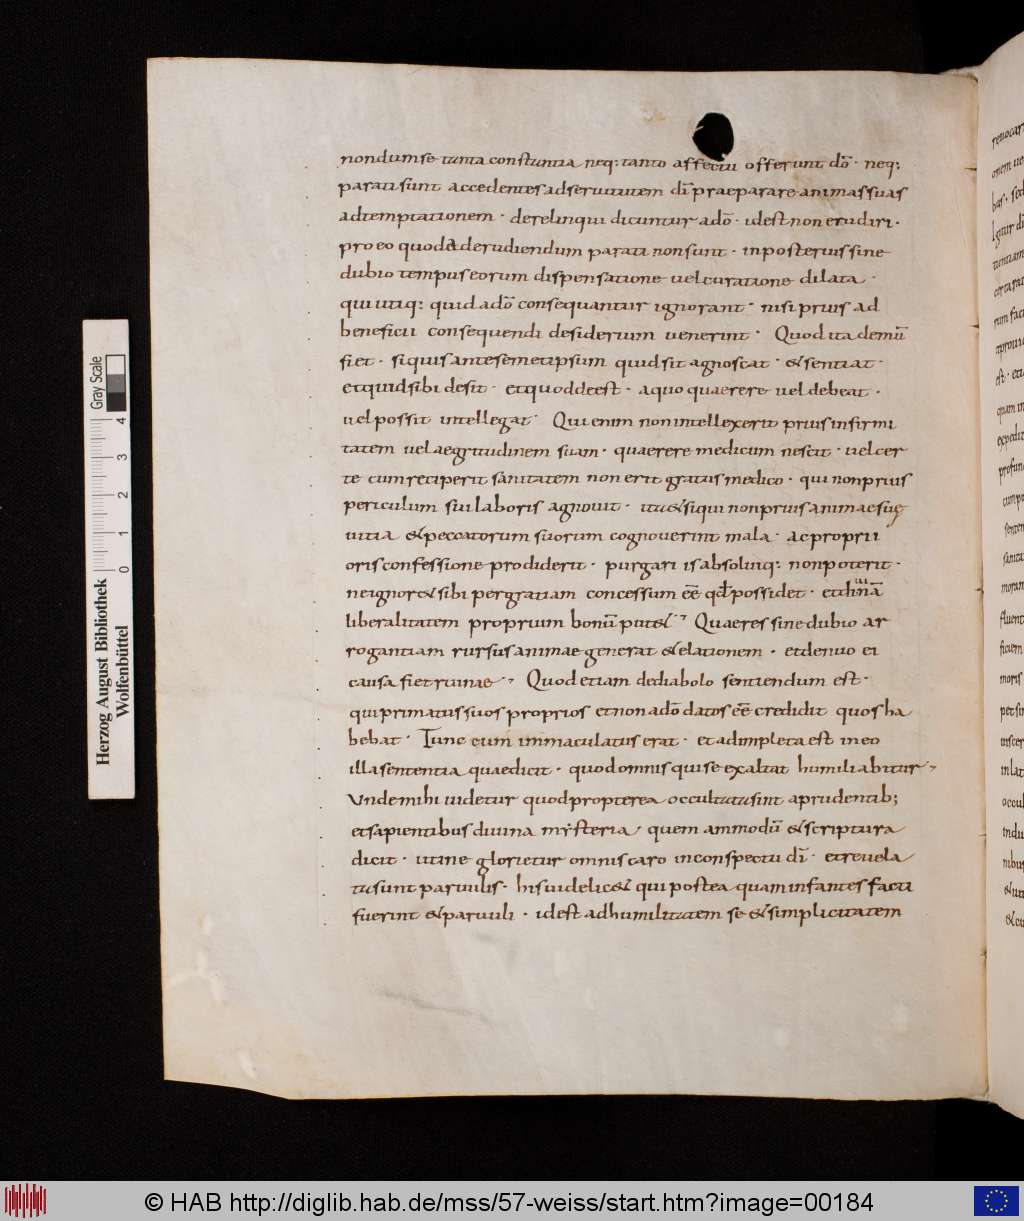 nondum se tanta constantia neq: tanto affectu offerunt dō · neq:
parati sunt accedentes ad seruitutem dī praeparare animas suas
ad temptationem · derelinqui dicuntur a dō · id est non erudiri ·
pro eo quod ad erudiendum parati non sunt · in posterius sine
dubio tempus eorum dispensatione uel curatione dilata ·
qui utiq: quid a dō consequantur ignorant · nisi prius ad
beneficii consequendi desiderium uenerint · Quod ita demū
fiet · si quis ante semetipsum quid sit agnoscat · & sentiat ·
et quid sibi desit · et quod deest · a quo quaerere uel debeat ·
uel possit intellegat · Qui enim non intellexerit prius infirmi
tatem uel aegritudinem suam · quaerere medicum nescit · uel cer
te cum reciperit sanitatem non erit gratus medico · qui non prius
periculum sui laboris agnouit · ita & si qui non prius animae suę
uitia & peccatorum suorum cognouerint mala · ac proprii
oris confessione prodiderit · purgari is absoluiq: non poterit ·
ne ignor& sibi per gratiam concessum eē qđ possidet · et diuinā
liberalitatem proprium bonū put& · Quae res sine dubio ar
rogantiam rursus animae generat & elationem · et denuo ei
causa fiet ruinae · Quod etiam de diabolo sentiendum est ·
qui primatus suos proprios et non a dō datos eē credidit quos ha
bebat · Tunc cum immaculatus erat · et adimpleta est in eo
illa sententia quae dicit · quod omnis qui se exaltat humiliabitur ·
Unde mihi uidetur quod propterea occultata sint a prudentib;
et sapientibus diuina mysteria · quem ammodū & scriptura
dicit · ut ne glorietur omnis caro in conspectu dī · et reuela
ta sunt paruulis · his uidelic& qui postea quam infantes facti
fuerint & paruuli · id est ad humilitatem se & simplicitatem
Gray Scale
0 1 2 3 4
Herzog August Bibliothek
Wolfenbüttel
© HAB http://diglib.hab.de/mss/57-weiss/start.htm?image=00184